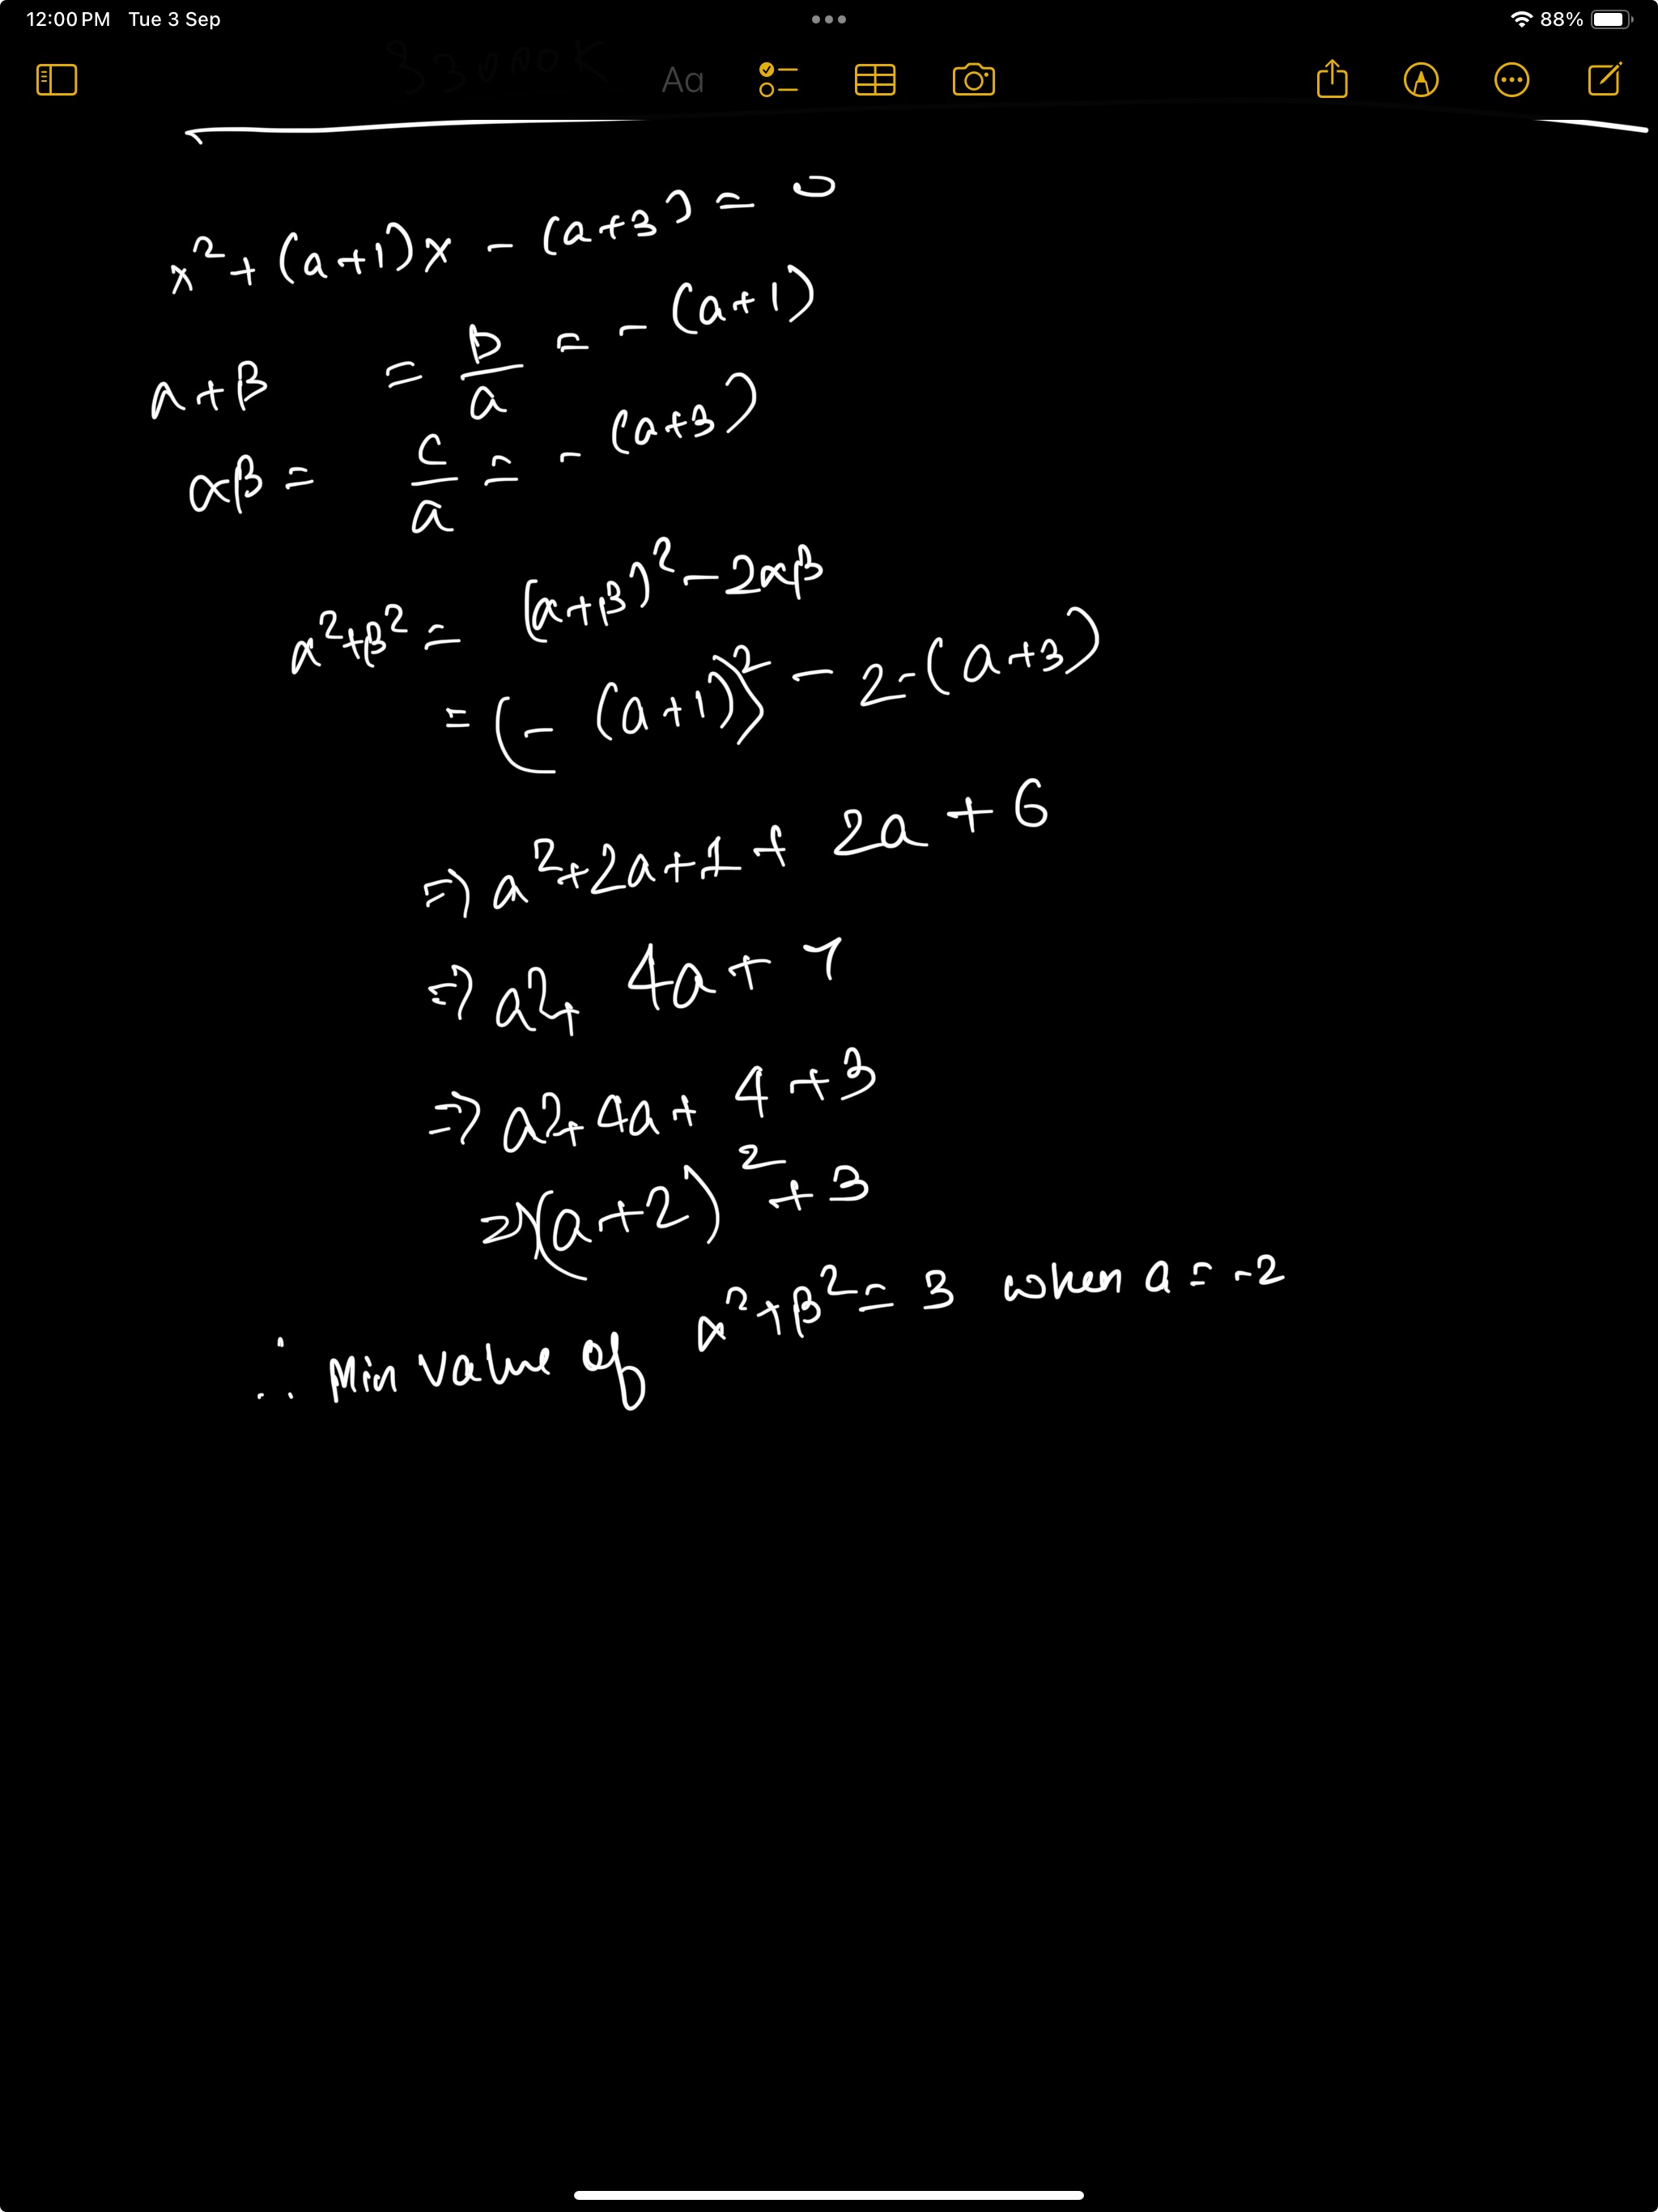 12:00 PM Tue 3 Sep 88%
33000K
Aa
x² + (a+1)x - (a+3) = 0
α+β = b/a = -(a+1)
αβ = c/a = -(a+3)
α²+β² = (α+β)² - 2αβ
= (-(a+1))² - 2-(a+3)
⇒ a²+2a+1+2a+6
⇒ a²+4a+7
⇒ a²+4a+4+3
⇒ (a+2)²+3
∴ Min value of α²+β² = 3 when a = -2